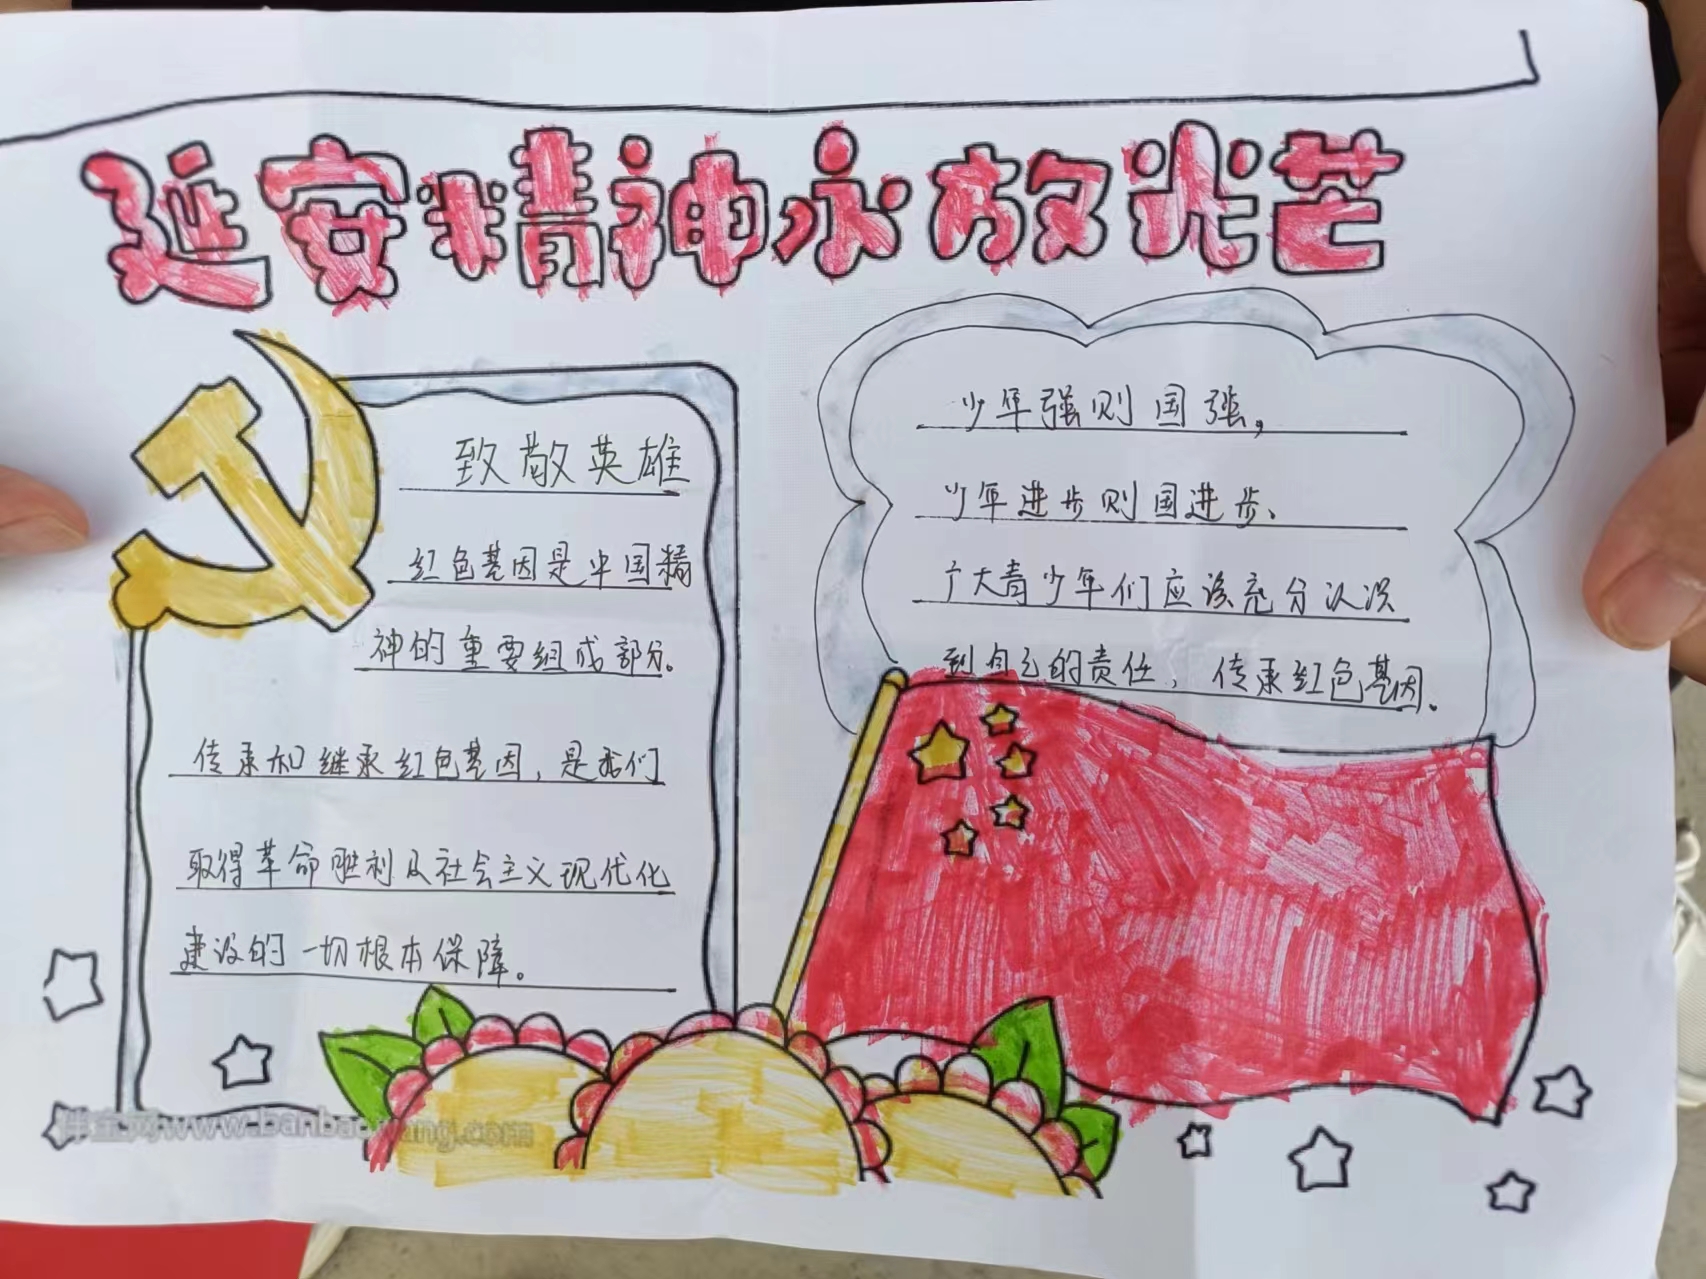 延安精神永放光芒
致敬英雄
红色基因是中国精
神的重要组成部分。
传承和继承红色基因，是我们
取得革命胜利及社会主义现代化
建设的一切根本保障。
少年强则国强，
少年进步则国进步、
广大青少年们应该充分认识
到自己的责任，传承红色基因。
www.banbaowang.com